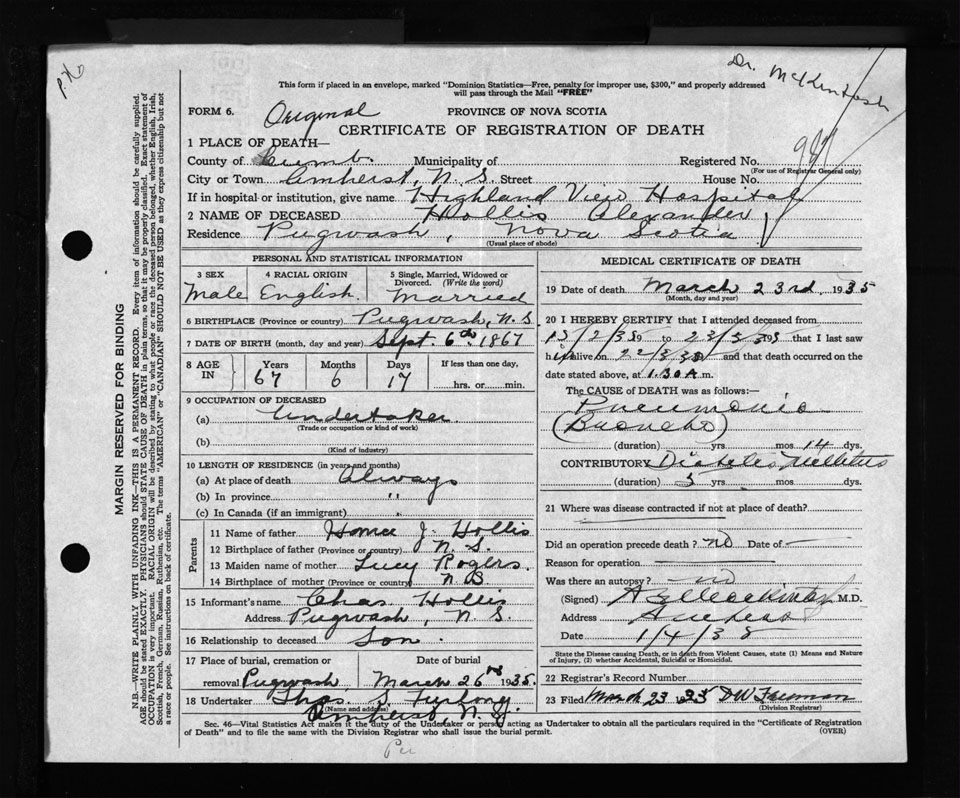 P.H.
Dr. McKintosh
This form if placed in an envelope, marked "Dominion Statistics—Free, penalty for improper use, $300," and properly addressed
will pass through the Mail "FREE"
FORM 6. Original PROVINCE OF NOVA SCOTIA
CERTIFICATE OF REGISTRATION OF DEATH
1 PLACE OF DEATH—
County of Cumb. Municipality of Registered No.
(For use of Registrar General only)
City or Town Amherst, N.S. Street House No.
If in hospital or institution, give name Highland View Hospital
2 NAME OF DECEASED Hollis Alexander
Residence Pugwash, Nova Scotia
(Usual place of abode)
PERSONAL AND STATISTICAL INFORMATION
3 SEX 4 RACIAL ORIGIN 5 Single, Married, Widowed or
Divorced. (Write the word)
Male English. Married
6 BIRTHPLACE (Province or country) Pugwash, N.S.
7 DATE OF BIRTH (month, day and year) Sept. 6th 1867
8 AGE IN Years Months Days If less than one day,
67 6 17 hrs. or min.
9 OCCUPATION OF DECEASED
(a) Undertaker
(Trade or occupation or kind of work)
(b)
(Kind of industry)
10 LENGTH OF RESIDENCE (in years and months)
(a) At place of death Always
(b) In province "
(c) In Canada (if an immigrant)
Parents
11 Name of father J. Hollis
12 Birthplace of father (Province or country) N.S.
13 Maiden name of mother Lucy Rogers.
14 Birthplace of mother (Province or country) N.B.
15 Informant's name Chas Hollis
Address Pugwash, N.S.
16 Relationship to deceased Son.
17 Place of burial, cremation or Date of burial
removal Pugwash March 26th 1935.
18 Undertaker Thos. S. Furlong.
(Name and address)
Amherst, N.S.
MEDICAL CERTIFICATE OF DEATH
19 Date of death March 23rd, 1935
(Month, day and year)
20 I HEREBY CERTIFY that I attended deceased from
to that I last saw
h alive on and that death occurred on the
date stated above, at 1.30 A.m.
The CAUSE of DEATH was as follows:—
Pneumonia
(Broncho)
(duration) yrs. mos 14 dys.
CONTRIBUTORY Diabetes Mellitus
(duration) 5 yrs. mos. dys.
21 Where was disease contracted if not at place of death?
Did an operation precede death? no Date of —
Reason for operation —
Was there an autopsy? no
(Signed) M.D.
Address Amherst
Date 1/4/35
State the Disease causing Death, or in death from Violent Causes, state (1) Means and Nature
of Injury, (2) whether Accidental, Suicidal or Homicidal.
22 Registrar's Record Number
23 Filed March 23 1935 DW Freeman
(Division Registrar)
Sec. 46—Vital Statistics Act makes it the duty of the Undertaker or person acting as Undertaker to obtain all the particulars required in the "Certificate of Registration
of Death" and to file the same with the Division Registrar who shall issue the burial permit.
(OVER)
MARGIN RESERVED FOR BINDING
N.B.—WRITE PLAINLY WITH UNFADING INK—THIS IS A PERMANENT RECORD. Every item of information should be carefully supplied.
AGE should be stated EXACTLY. PHYSICIANS should STATE CAUSE OF DEATH in plain terms, so that it may be properly classified. Exact statement of
OCCUPATION is very important. RACIAL ORIGIN will be described by stating to what people or race the deceased person belonged, whether English, Irish,
Scottish, French, German, Russian, Ruthenian, etc. The terms "AMERICAN" or "CANADIAN" SHOULD NOT BE USED as they express citizenship but not
a race or people. See instructions on back of certificate.